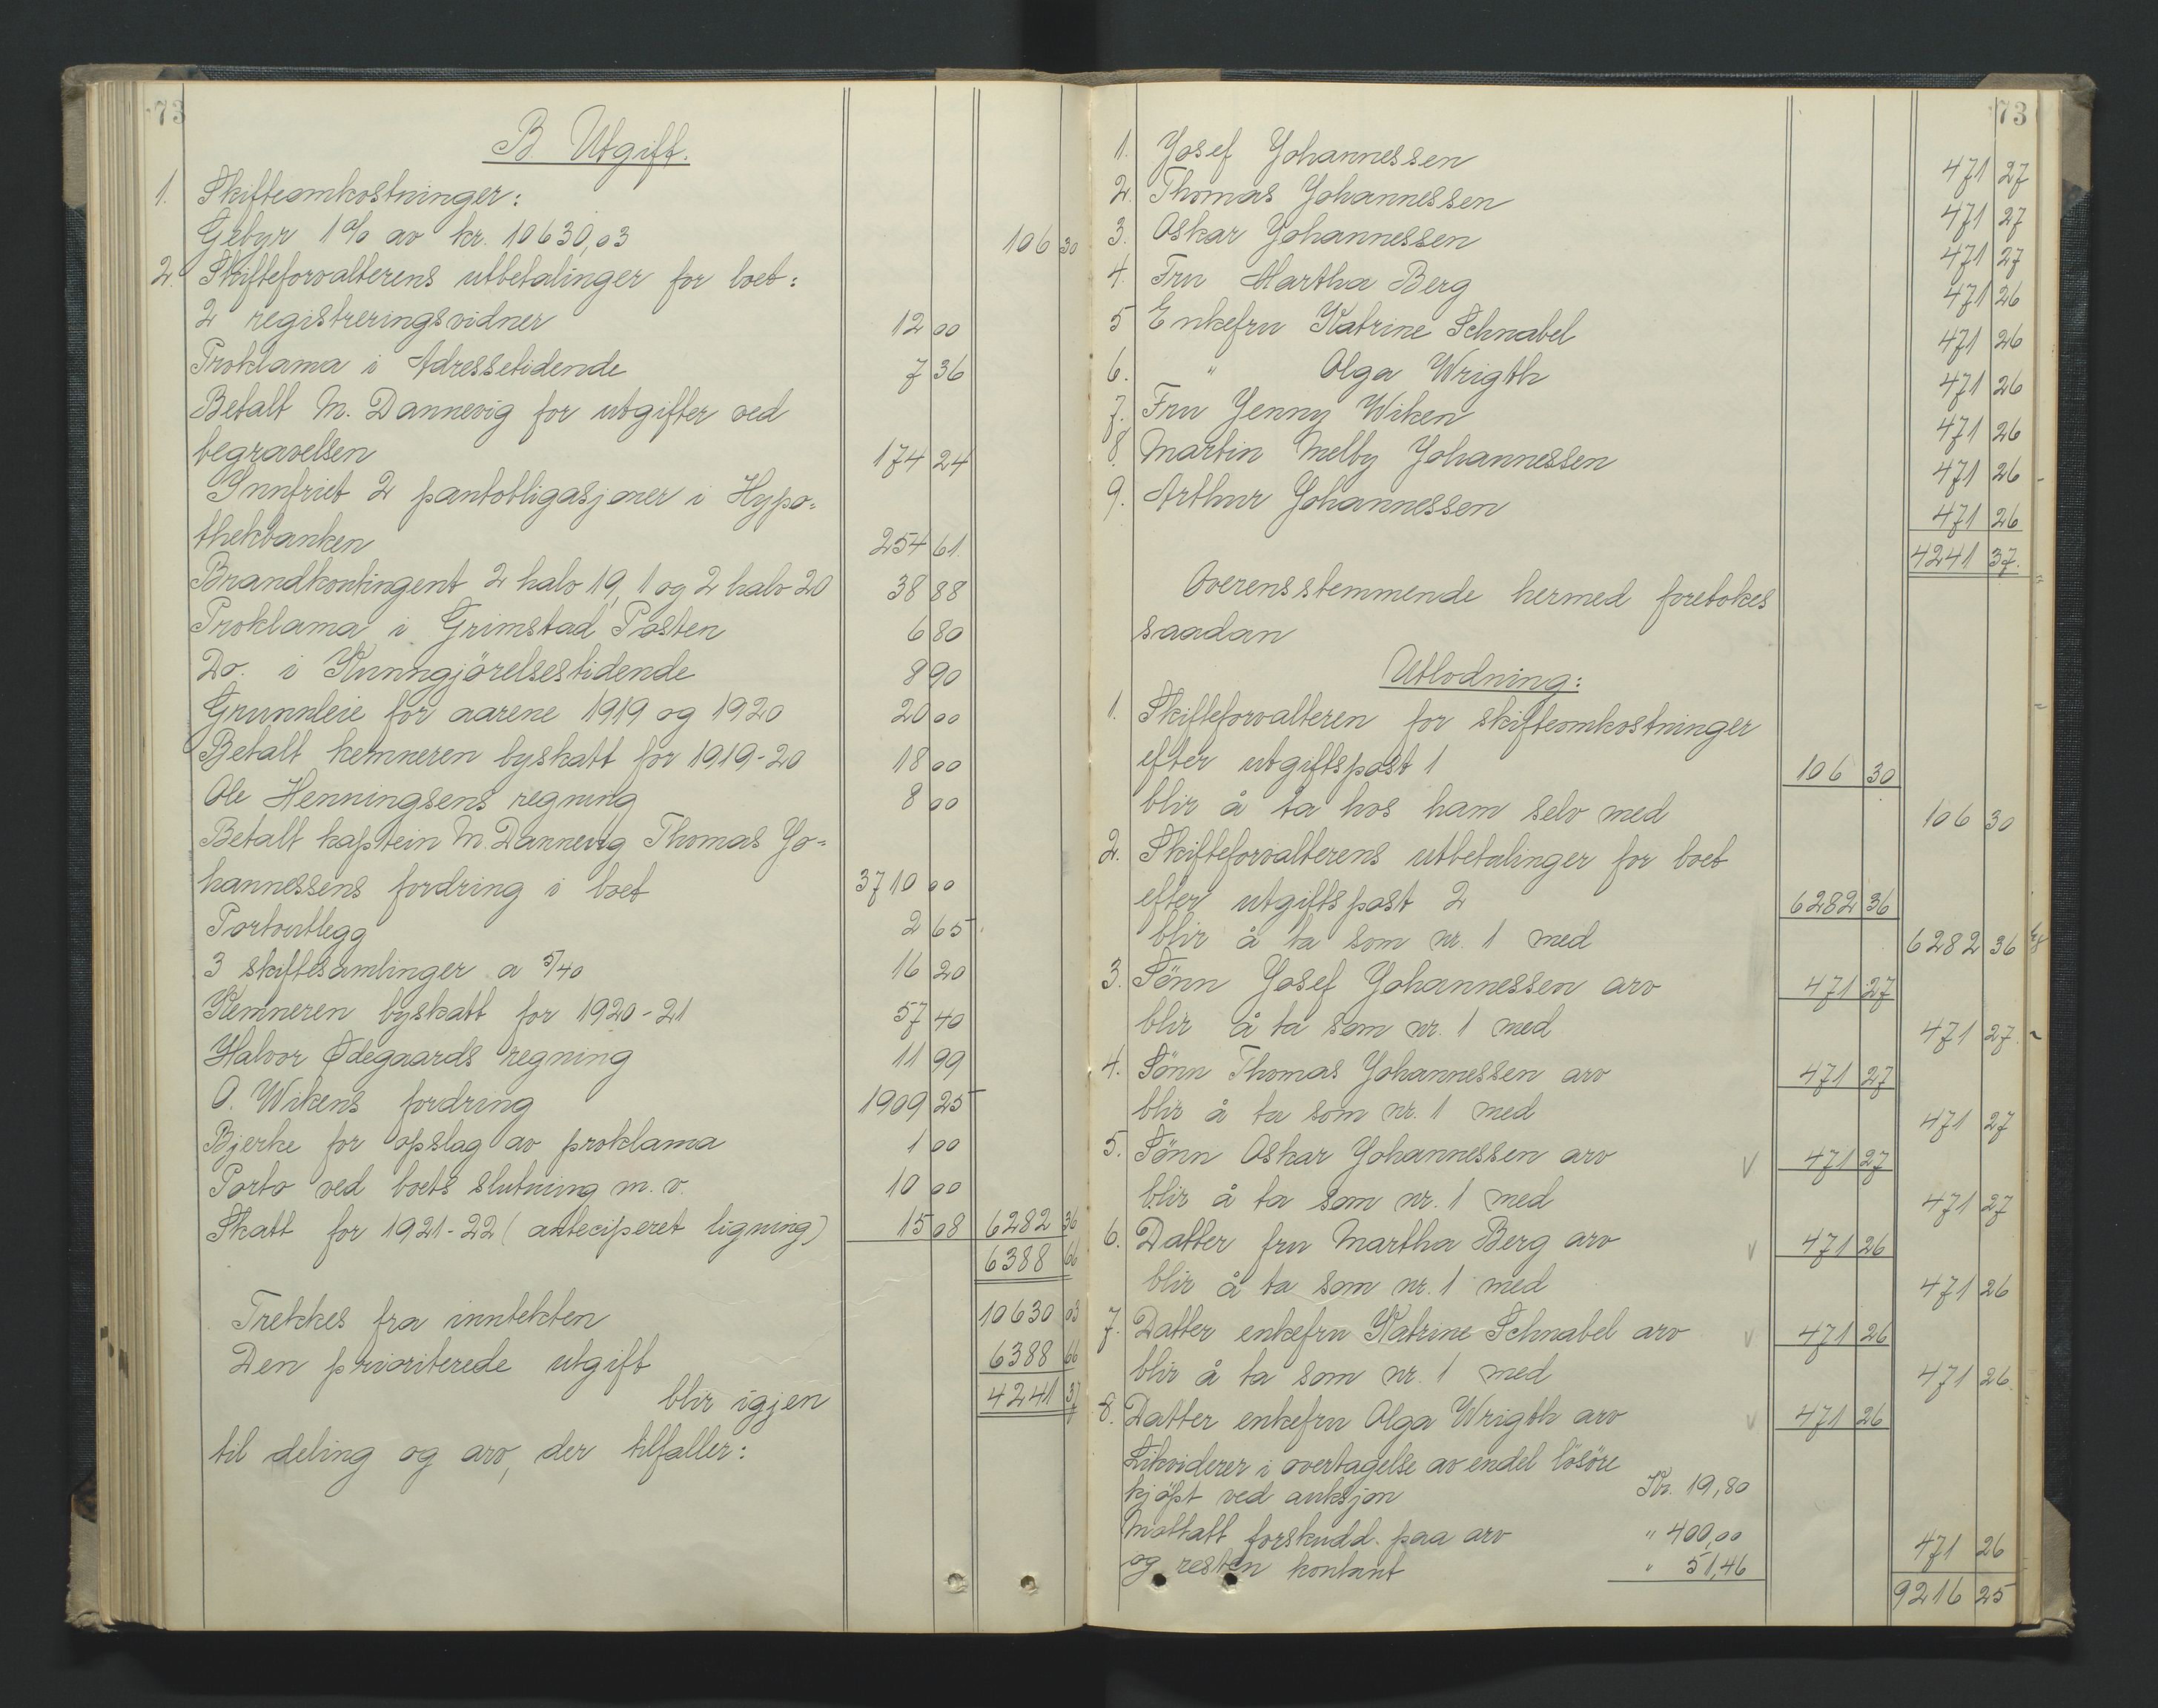 73
B Utgift.
1. Skifteomkostninger:
Gebyr 1% av kr. 10630,03 106 30
2. Skifteforvalterens utbetalinger for boet:
2 registreringsvidner 12 00
Proklama i Adressetidende 7 36
Betalt M. Dannevig for utgifter ved
begravelsen 174 24
Innfriet 2 pantobligasjoner i Hypo-
thekbanken 254 61.
Brandkontingent 2 halv 19, 1 og 2 halv 20 38 88
Proklama i Grimstad Posten 6 80
Do. i Kunngjörelsestidende 8 90
Grunnleie for aarene 1919 og 1920 20 00
Betalt kemneren byskatt for 1919-20 18 00
Ole Henningsens regning 8 00
Betalt kaptein M. Dannevig Thomas Jo-
hannessens fordring i boet 3710 00
Portoutlegg 2 65
3 skiftesamlinger a 5/40 16 20
Kemneren byskatt for 1920-21 57 40
Halvor Ødegaards regning 11 99
O. Wikens fordring 1909 25
Bjerke for opslag av proklama 1 00
Porto ved boets slutning m. v. 10 00
Skatt for 1921-22 (anteciperet ligning) 15 08 6282 36
6388 66
Trekkes fra inntekten 10630 03
Den prioriterede utgift 6388 66
blir igjen 4241 37
til deling og arv, der tilfaller:
73
1. Josef Johannessen 471 27
2. Thomas Johannessen 471 27
3. Oskar Johannessen 471 27
4. Fru Martha Berg 471 26
5 Enkefru Katrine Schnabel 471 26
6. " Olga Wrigth 471 26
7. Fru Jenny Wiken 471 26
8. Martin Melby Johannessen 471 26
9. Arthur Johannessen 471 26
4241 37.
Overensstemmende hermed foretokes
saadan
Utlodning:
1. Skifteforvalteren for skifteomkostninger
efter utgiftspost 1 106 30
blir å ta hos ham selv med 106 30
2. Skifteforvalterens utbetalinger for boet
efter utgiftspost 2 6282 36
blir å ta som nr. 1 med 6282 36
3. Sönn Josef Johannessen arv 471 27
blir å ta som nr. 1 med 471 27.
4. Sönn Thomas Johannessen arv 471 27
blir å ta som nr. 1 med 471 27
5. Sönn Oskar Johannessen arv V 471 27
blir å ta som nr. 1 med 471 27
6. Datter fru Martha Berg arv V 471 26
blir å ta som nr. 1 med 471 26
7. Datter enkefru Katrine Schnabel arv V 471 26
blir å ta som nr. 1 med 471 26
8. Datter enkefru Olga Wrigth arv V 471 26
Likviderer i overtagelse av endel lösöre
kjöpt ved auksjon Kr. 19,80
Mottatt forskudd paa arv " 400,00
og resten kontant " 51,46 471 26
9216 25